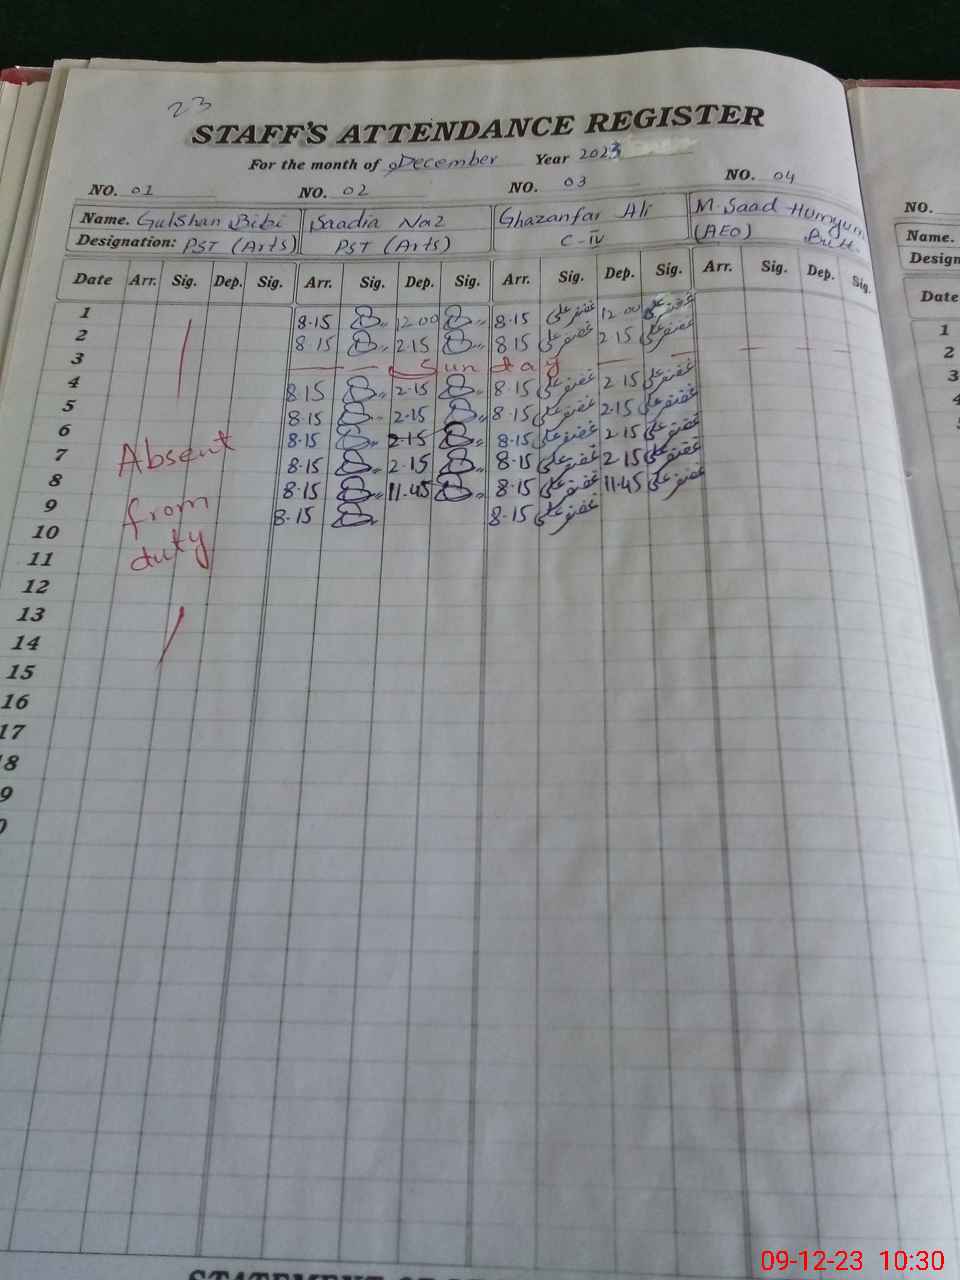 23
STAFF'S ATTENDANCE REGISTER
For the month of December Year 2023
NO. 01 NO. 02 NO. 03 NO. 04 NO.
Name. Gulshan Bibi Saadia Naz Ghazanfar Ali M. Saad Humyun Name.
Designation: PST (Arts) PST (Arts) C-IV (AEO) Butt. Design
Date Arr. Sig. Dep. Sig. Arr. Sig. Dep. Sig. Arr. Sig. Dep. Sig. Arr. Sig. Dep. Sig. Date
1 8.15 12.00 8.15 غضنفر علی 12 00 غضنفر علی 1
2 8.15 2.15 8.15 غضنفر علی 2 15 غضنفر علی 2
3 Sunday 3
4 8.15 2.15 8.15 غضنفر علی 2 15 غضنفر علی
5 8.15 2.15 8.15 غضنفر علی 2.15 غضنفر علی
6 Absent 8.15 2.15 8.15 غضنفر علی 2 15 غضنفر علی
7 8.15 2.15 8.15 غضنفر علی 2 15 غضنفر علی
8 from 8.15 11.45 8.15 غضنفر علی 11.45 غضنفر علی
9 duty 8.15 8.15 غضنفر علی
10
11
12
13
14
15
16
17
8
9
09-12-23 10:30